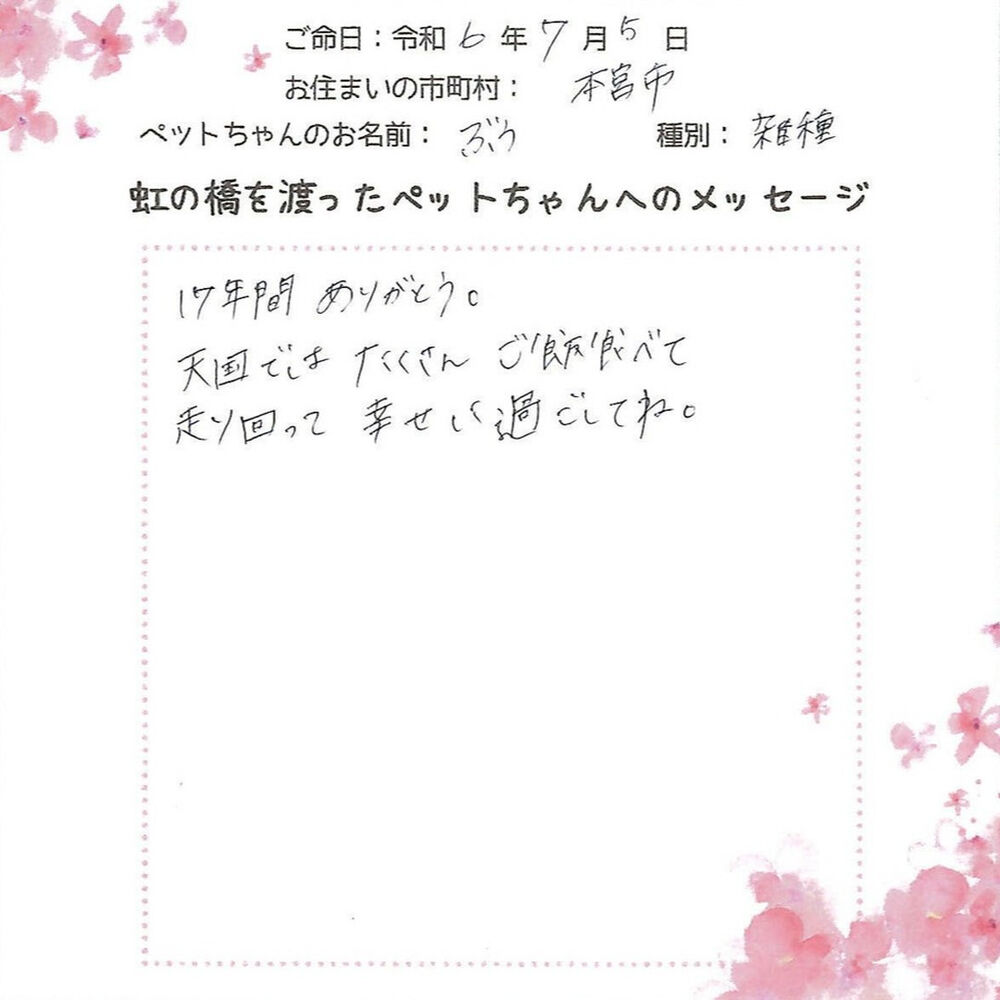 ご命日：令和 6 年 7 月 5 日
お住まいの市町村： 本宮市
ペットちゃんのお名前： ぶう 種別： 雑種
虹の橋を渡ったペットちゃんへのメッセージ
17年間 ありがとう。
天国では たくさん ご飯食べて
走り回って 幸せに過ごしてね。